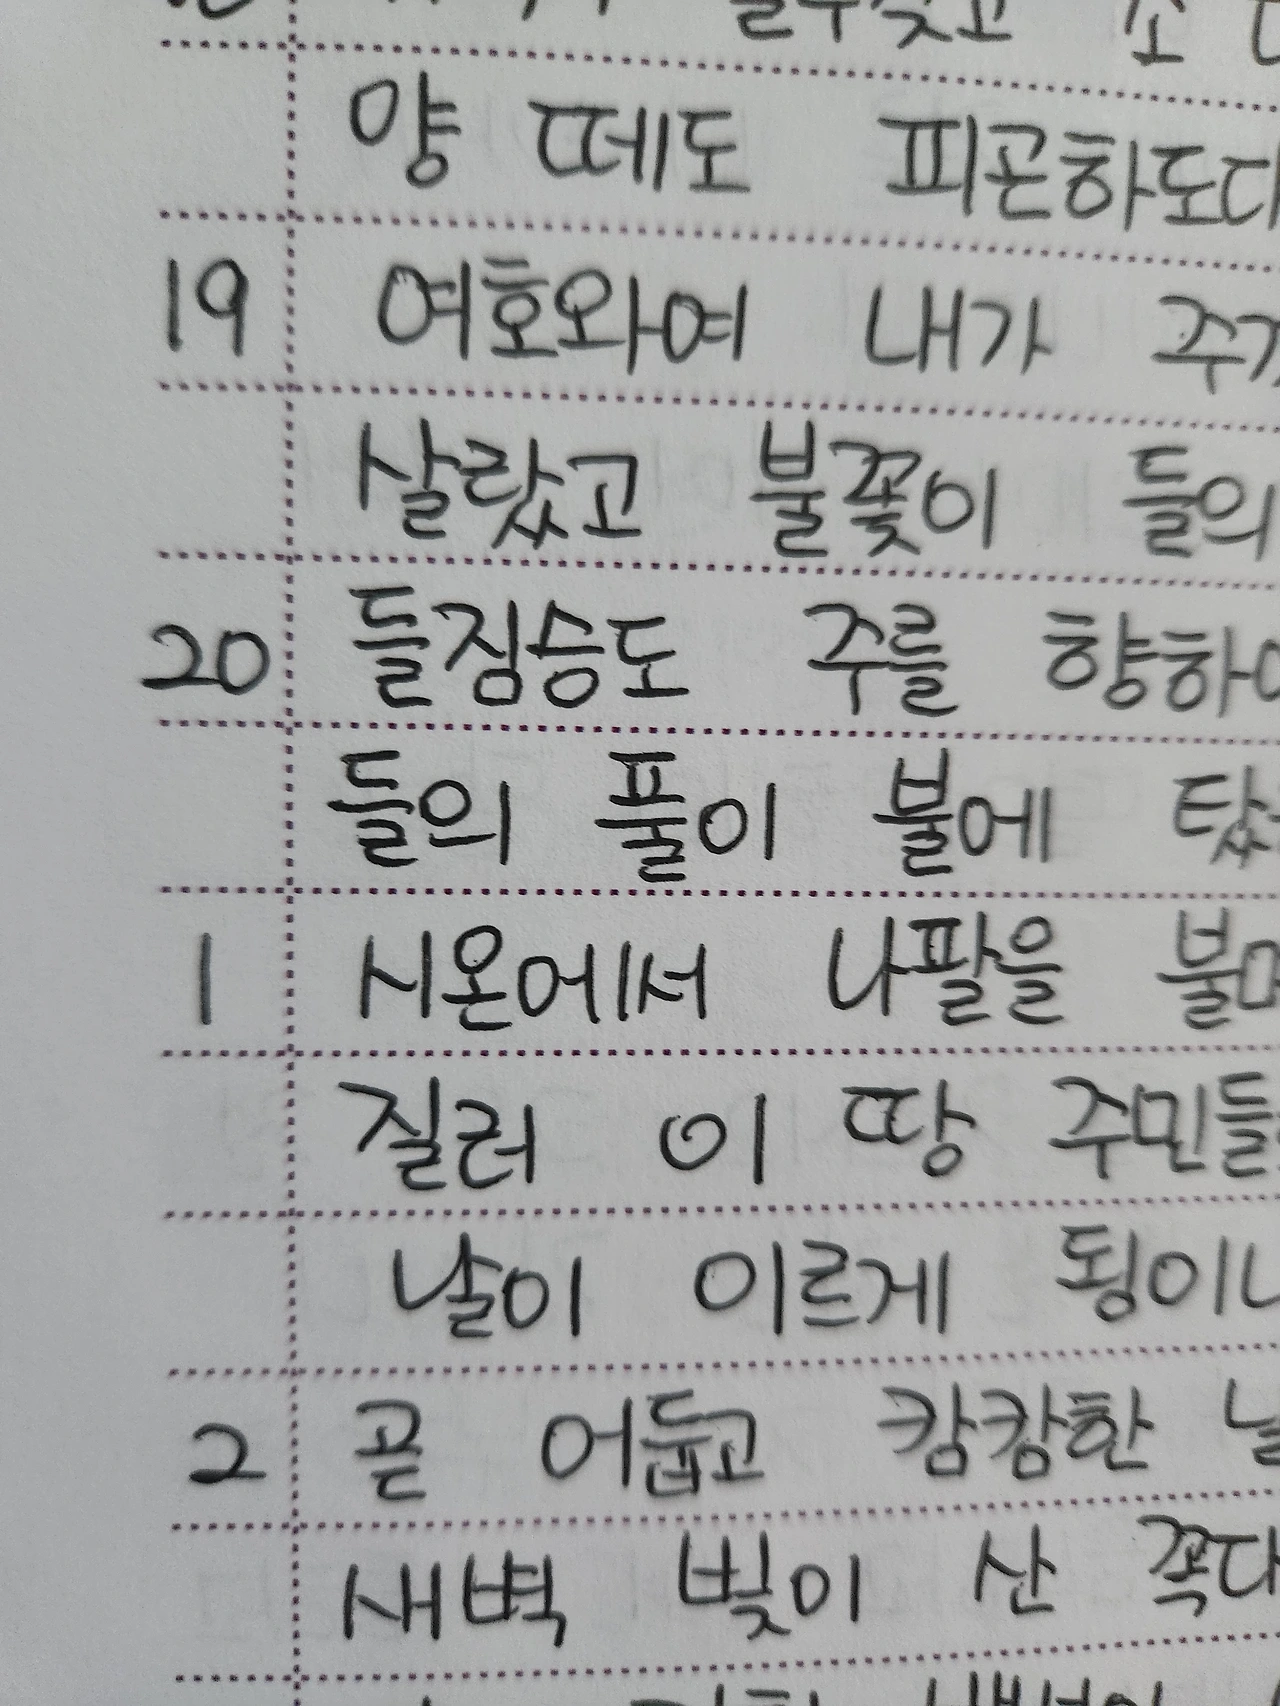 양 떼도 피곤하도다
19 여호와여 내가 주께
살랐고 불꽃이 들의
20 들짐승도 주를 향하여
들의 풀이 불에 탔
1 시온에서 나팔을 불며
질러 이 땅 주민들
날이 이르게 됭이니
2 곧 어둡고 캄캄한
새벽 빛이 산 꼭대